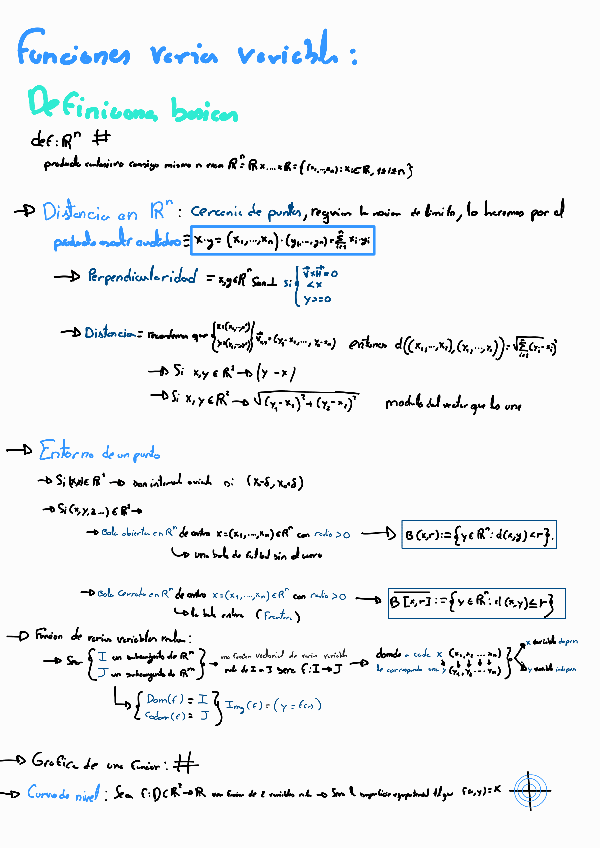 Funciones varias variable :
Definiciona basicas
def: ℝⁿ #
producto cartesiano consigo mismo n veces ℝⁿ = ℝ x....xℝ = {(x₁,...,xₙ) : xᵢ∈ℝ, 1≤i≤n}
→ Distancia en ℝⁿ : cercania de puntos, requiere la nocion de limite, lo hacemos por el
producto escalar euclideo = x·y = (x₁,...,xₙ) · (y₁,...,yₙ) = Σⁿᵢ₌₁ xᵢ·yᵢ
→ Perpendicularidad = x,y∈ℝⁿ Son ⊥ si
<x
y>=0
→ Distancia = recordemos que
entonces d((x₁,...,xₙ),(y₁,...,yₙ)) = √Σ(yᵢ-xᵢ)²
→ Si x,y ∈ ℝ² → |y - x|
→ Si x,y ∈ ℝ² → √(y₁-x₁)²+(y₂-x₂)² modulo del vector que lo une
→ Entorno de un punto
→ Si ∈ ℝ² → si (x-δ, x+δ)
→ Si (x,y,z...) ∈ ℝ² →
→ Bola abierta en ℝⁿ de centro x=(x₁,...,xₙ)∈ℝⁿ con radio >0 → B(x,r) := {y∈ℝⁿ : d(x,y) < r}.
↳ una bola de futbol sin el cuero
→ Bola Cerrada en ℝⁿ de centro x=(x₁,...,xₙ)∈ℝⁿ con radio >0 → B[x,r] := {y∈ℝⁿ : d(x,y) ≤ r}
↳ la bola entera (Frontera)
→ Funcion de varias variables reales :
→ Sea { I un subconjunto de ℝⁿ
J un subconjunto de ℝᵐ } → una funcion vectorial de varias variable
reale de I en J sera f: I → J → donde a cada x (x₁, x₂ ... xₙ)
le corresponde una y (y₁, y₂ ... yₘ)
x variable depen
y variable indepen
↳ { Dom(f) = I
Codom(f) = J } Img(f) = (y = f(x))
→ Grafica de una funcion : #
→ Curva de nivel : Sea f: D⊂ℝ² → ℝ una funcion de 2 variables → Son f(x,y) = K